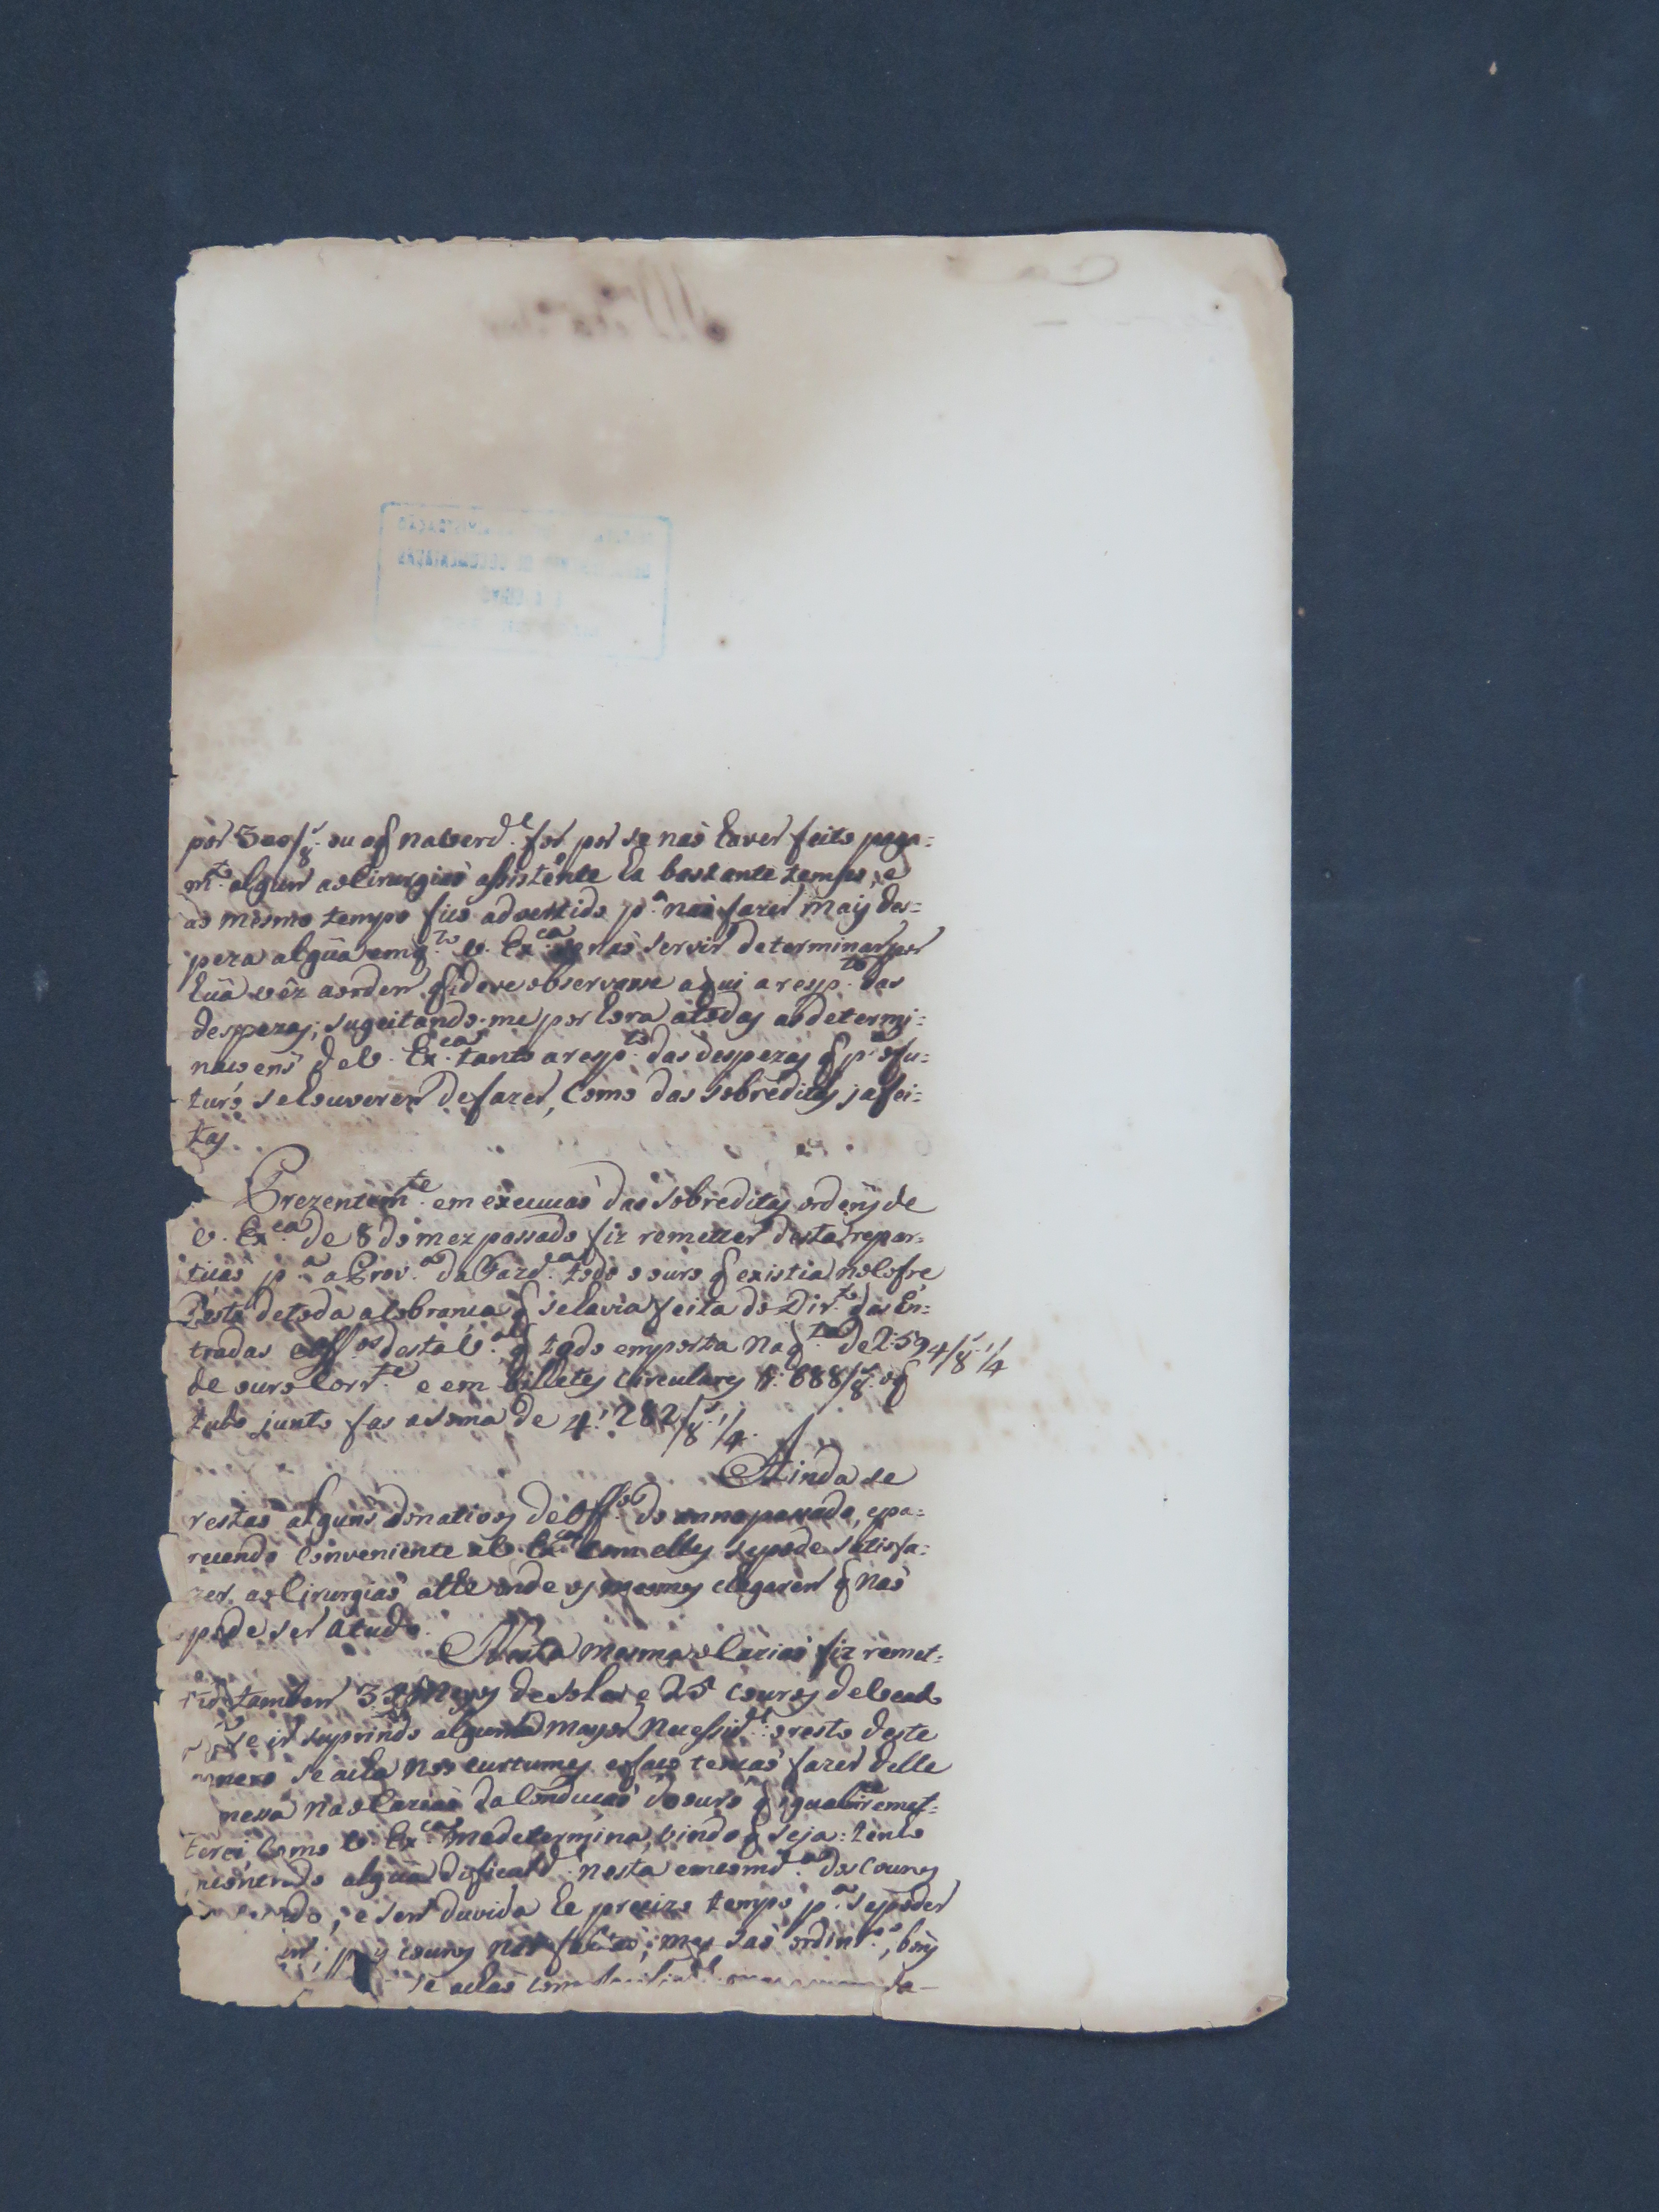 por 300/8.ˢ ou o q̃ na verd.ᵉ for por se naõ haver feito paga=
m.ᵗᵒ algum ao Cirurgiaõ assistente ha bastante tempo, e
ao mesmo tempo fico advertido p.ᵃ naõ fazer mais des=
peza algũa emq.ᵗᵒ V. Ex.ᶜᵃ se naõ servir determinar por
hũa vêz a ordem q̃ deve observarse aqui a resp.ᵗᵒ das
despezas; sugeitando-me por hora a todas as determi=
naçoens de V. Ex.ᶜᵃ tanto a resp.ᵗᵒ das despezas q̃ p.ᵃ o fu=
turo se houverem de fazer, como das sobreditas ja fei=
tas.
Prezentem.ᵗᵉ em execuçaõ das sobreditas ordens de
V. Ex.ᶜᵃ de 8 do mez passado fiz remetter desta repar=
tiçaõ p.ᵃ a Prov.ᵃ da Fazd.ᵃ todo o ouro q̃ existia no Cofre
desta de toda a cobrança q̃ se havia feita do Dir.ᵗᵒ das En=
tradas e Off.ᵒˢ desta V.ᵃ q̃ todo emporta na q.ᵗⁱᵃ de 2:594/8.ˢ 1/4
de ouro Corr.ᵗᵉ e em billetes circulares 1:688/8.ˢ o q̃
tudo junto fas a soma de 4:282/8.ˢ 1/4.
Ainda se
restaõ alguns donativos de Off.ᵒˢ do anno passado, e pa=
recendo conveniente a V. Ex.ᶜᵃ com elles se pode satisfa=
zer ao Cirurgiaõ athe onde os mesmos chegarem q̃ naõ
pode ser a tudo.
Nesta mesma occaziaõ fiz remet=
tambem meyos de sola e 25 couros de Veado
se ir suprindo alguma mayor necessid.ᵉ: o resto deste
se acha nos curtumes e faço tençaõ fazer delle
messa na occaziaõ da conduçaõ do ouro q̃ igualm.ᵗᵉ remet=
terei como V. Ex.ᶜᵃ me determina, vindo q̃ seja: tenho
encontrado algũa dificuld.ᵉ nesta encomd.ᵃ dos couros
do; e sem duvida he precizo tempo p.ᵃ se poder
couros naõ mas saõ ordin.ᵒˢ, bois
se achaõ com